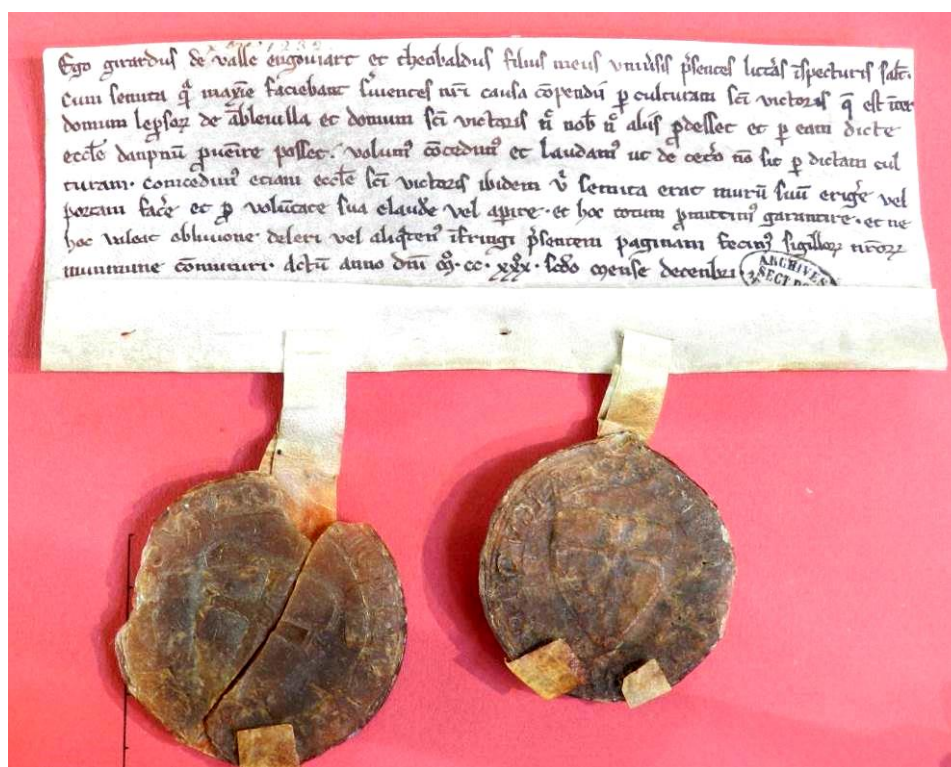 Ego girardus de valle engouiart et theobaldus filius meus vniuersis p̃sentes litt̃as ĩspecturis salt̃.
Cum semita q̃ma faciebant s̃uientes nr̃i causa cõpendii p culturam sc̃i victoris q̃ est inter
domum lep̃sor de ableuilla et domum sc̃i victoris nc̃ nob nc̃ aliis p̃desset et p eam dicte
eccl̃e dãpnũ puẽire posset. volum9 cõcedim9 et laudam9 ut de cet̃o nõ sit p dictam cul
turam. concedim9 etiam eccl̃e sc̃i victoris ibidem v̊ semita erat murũ suũ erig̃e vel
portam fac̃e et p volũtate sua claud̃e vel apire. et hoc totum p̃mittim9 garantire. et ne
hoc valeat obliuione deleri vel aliq̃ten9 ĩfringi p̃sentem paginam fecim9 sigillor nr̃or
munimine cõmuniri. Actũ anno dñi m̊. cc. xxx̊. scdo mense decembri
ARCHIVES
SECT